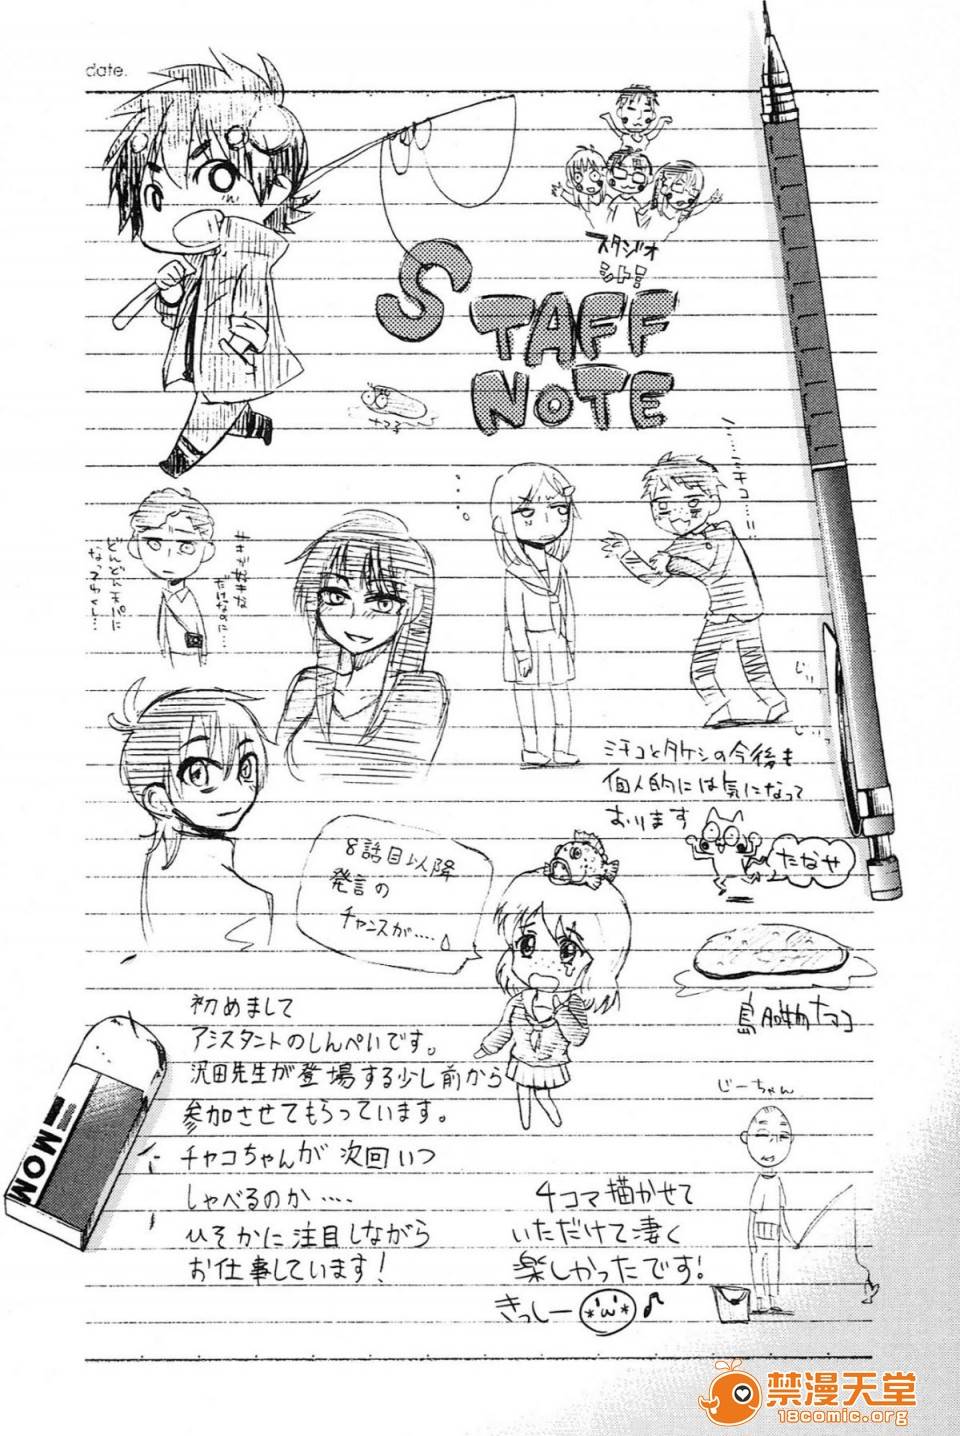 date.
スタジオ
シトミ
STAFF
NOTE
ナマコ
ミチコ
どんどん天パに
なってゆく…
じぃっ
じぃっ
ミチコとタケシの今後も
個人的には気になって
おります
たなせ
8話目以降
発言の
チャンスが....
鳥脂物ナマコ
初めまして
アシスタントのしんぺいです。
沢田先生が登場する少し前から
参加させてもらっています。
チャコちゃんが次回いつ
しゃべるのか....
ひそかに注目しながら
お仕事しています!
じーちゃん
4コマ描かせて
いただけて凄く
楽しかったです!
きっしー
MONO
禁漫天堂
18comic.org